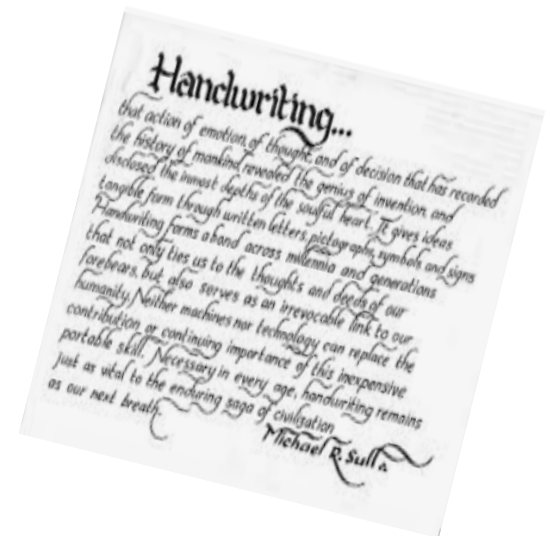 Handwriting...
that action of emotion, of thought, and of decision that has recorded
the history of mankind, revealed the genius of invention, and
disclosed the inmost depths of the soulful heart. It gives ideas
tangible form through written letters, pictographs, symbols and signs
Handwriting forms a bond across millennia and generations
that not only ties us to the thoughts and deeds of our
forebears, but also serves as an irrevocable link to our
humanity. Neither machines nor technology can replace the
contribution or continuing importance of this inexpensive
portable skill. Necessary in every age, handwriting remains
just as vital to the enduring saga of civilisation
as our next breath.
Michael R. Sull